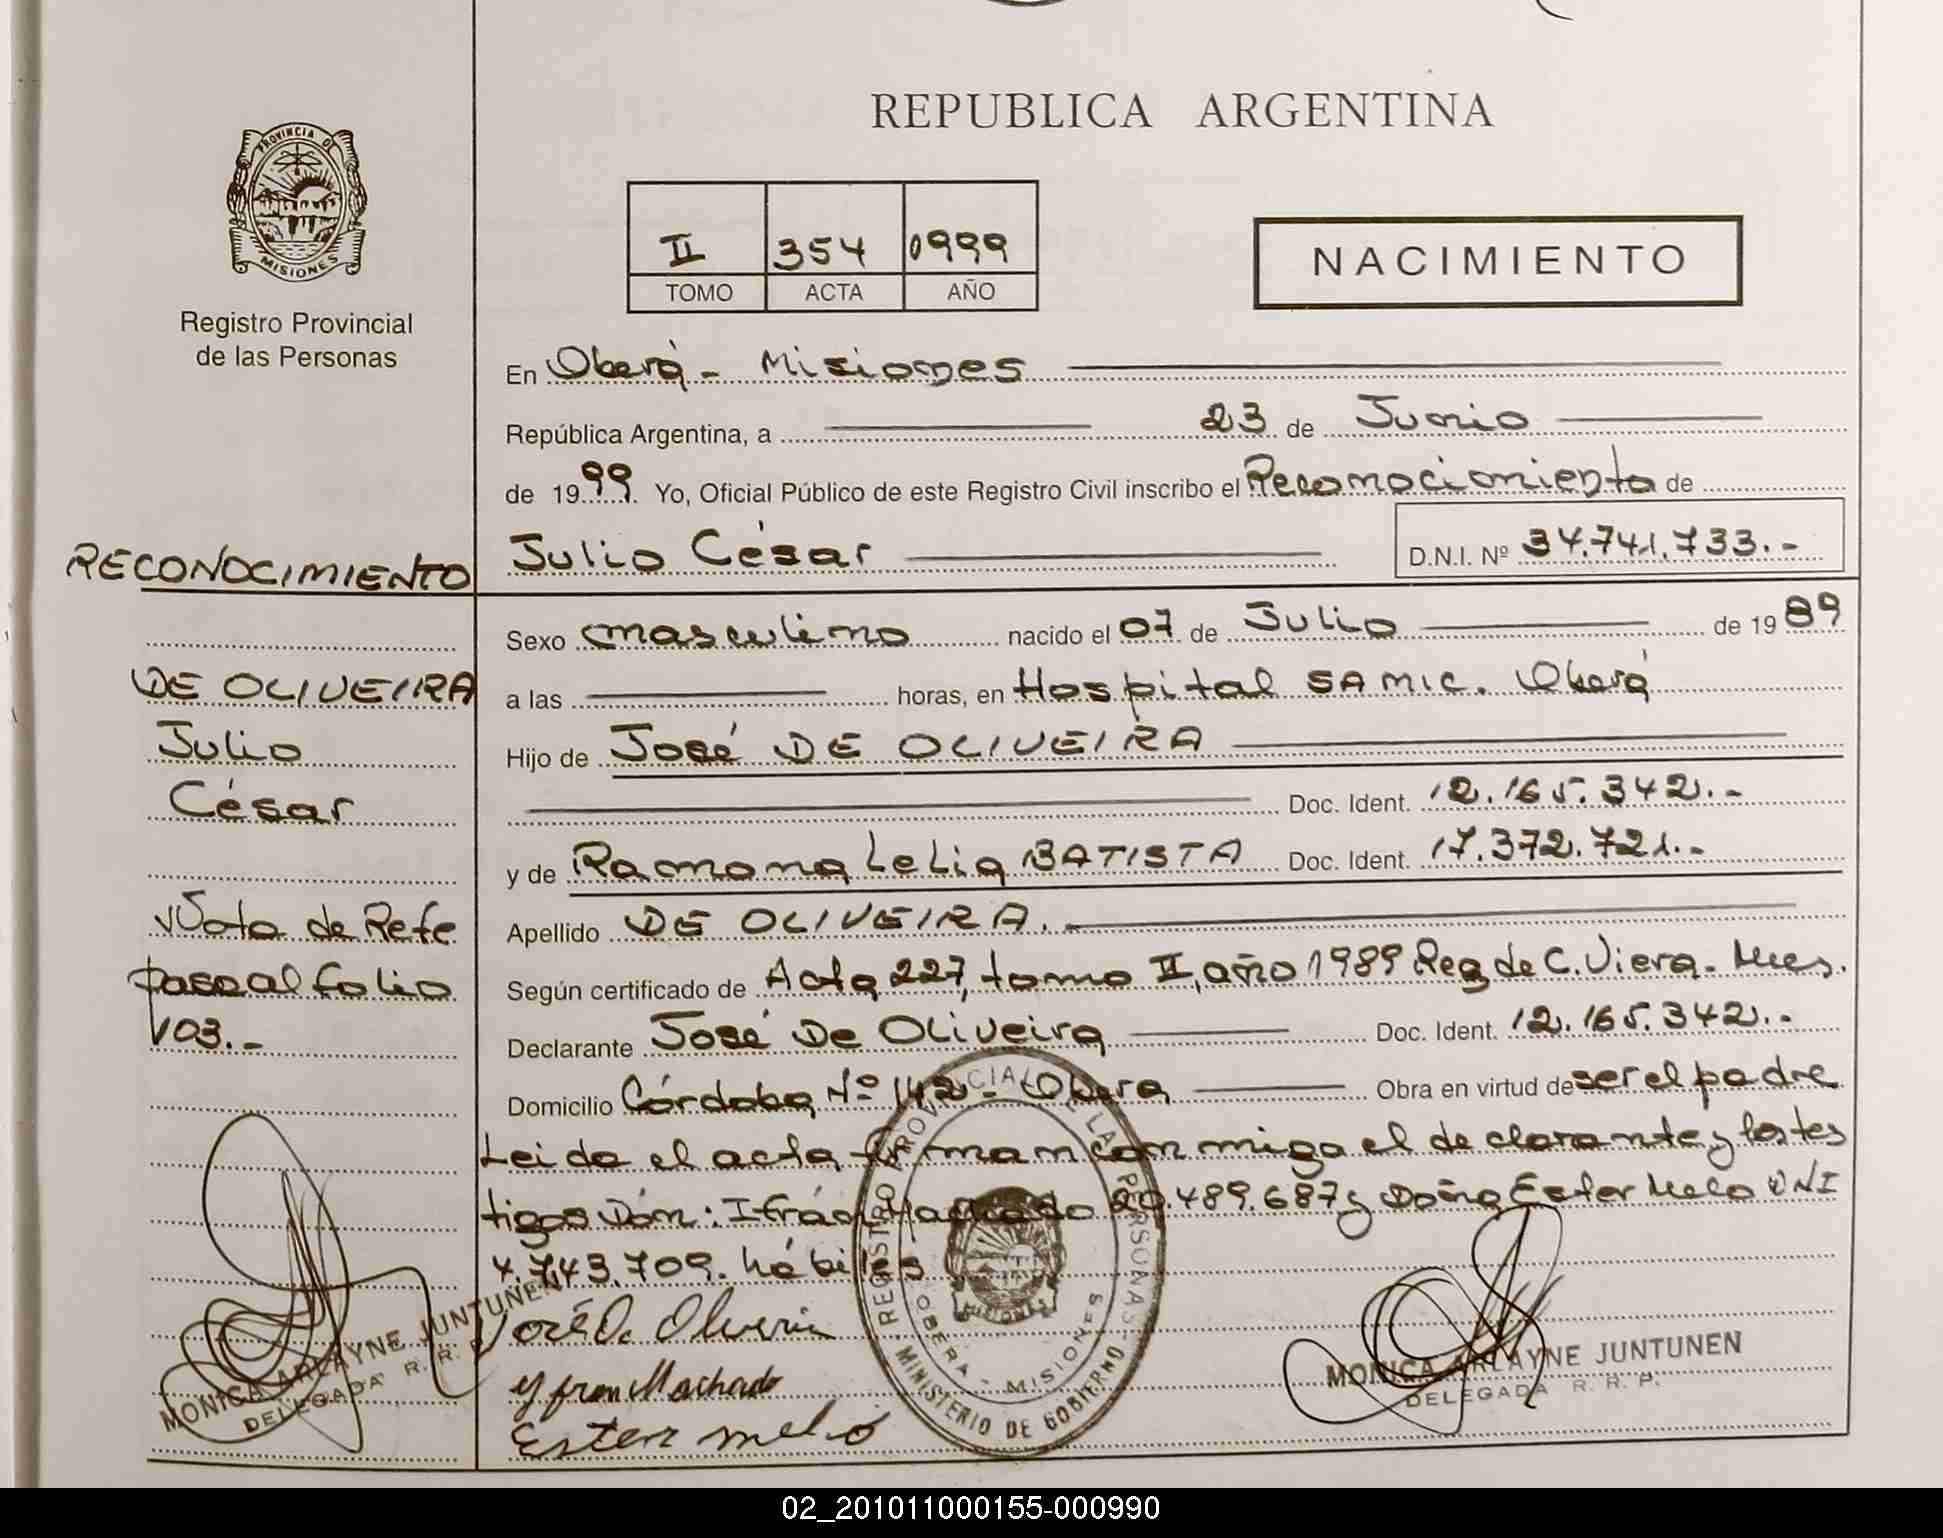 REPUBLICA ARGENTINA
PROVINCIA DE
MISIONES
Registro Provincial
de las Personas
II 354 0999
TOMO ACTA AÑO
NACIMIENTO
En Oberá - Misiones
República Argentina, a 23 de Junio
de 1999. Yo, Oficial Público de este Registro Civil inscribo el Reconocimiento de
Julio César D.N.I. Nº 34.741.733.-
RECONOCIMIENTO
Sexo masculino nacido el 07 de Julio de 1989
a las horas, en Hospital SAMIC. Oberá
Hijo de José DE OLIVEIRA
Doc. Ident. 12.165.342.-
y de Ramona Lelia BATISTA Doc. Ident. 17.372.721.-
Apellido DE OLIVEIRA.
Según certificado de Acta 227, tomo II, año 1989 Reg de C. Viera - Mnes.
Declarante José De Oliveira Doc. Ident. 12.165.342.-
Domicilio Córdoba Nº 142 - Oberá Obra en virtud de ser el padre
Leida el acta firman conmigo el declarante y los tes
tigos Dón: Ifrán Machado 20.489.687 y Doña Ester Melo DNI
4.743.709. hábiles
José D. Oliveira
yfran Machado
Ester melo
DE OLIVEIRA
Julio
César
Nota de Refe
Pasa al folio
103.-
MONICA ARLAYNE JUNTUNEN
DELEGADA R. R. P.
REGISTRO PROVINCIAL DE LAS PERSONAS
MINISTERIO DE GOBIERNO
OBERA - MISIONES
MISIONES
MONICA ARLAYNE JUNTUNEN
DELEGADA R. R. P.
02_201011000155-000990